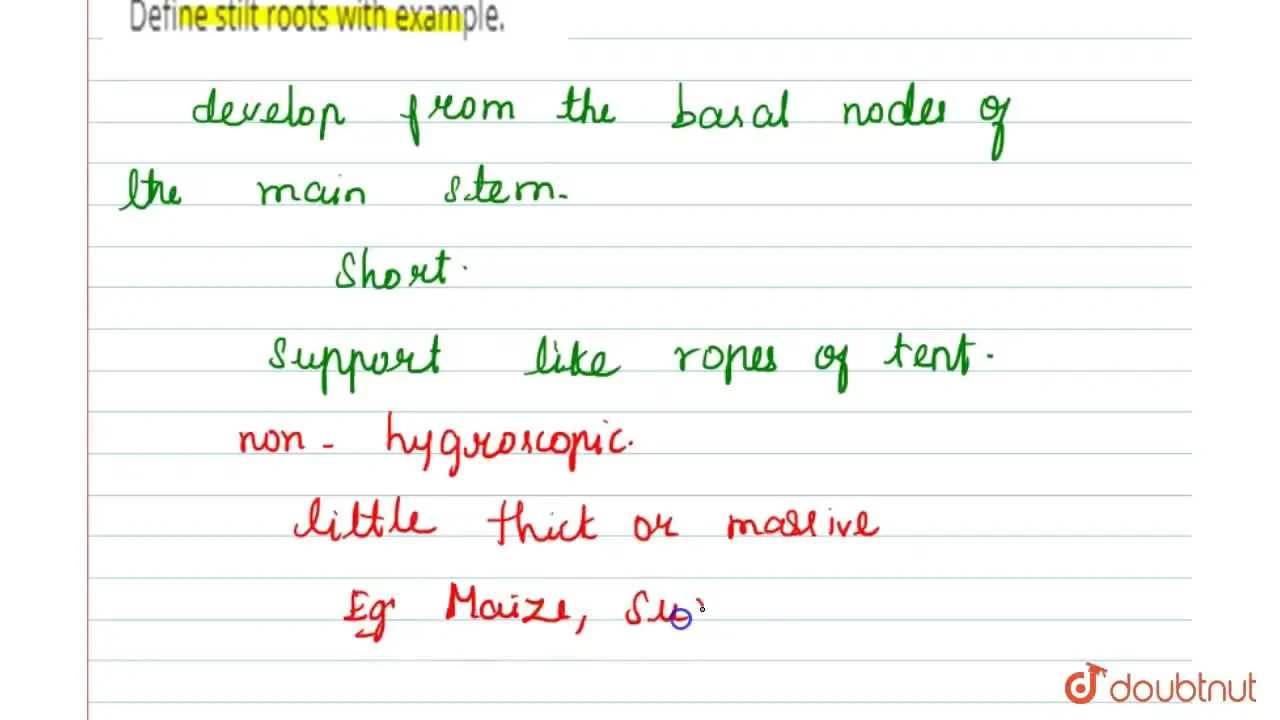 Define stilt roots with example.
develop from the basal nodes of
the main stem.
Short.
Support like ropes of tent.
non - hygroscopic.
little thick or massive
Eg Maize,
doubtnut